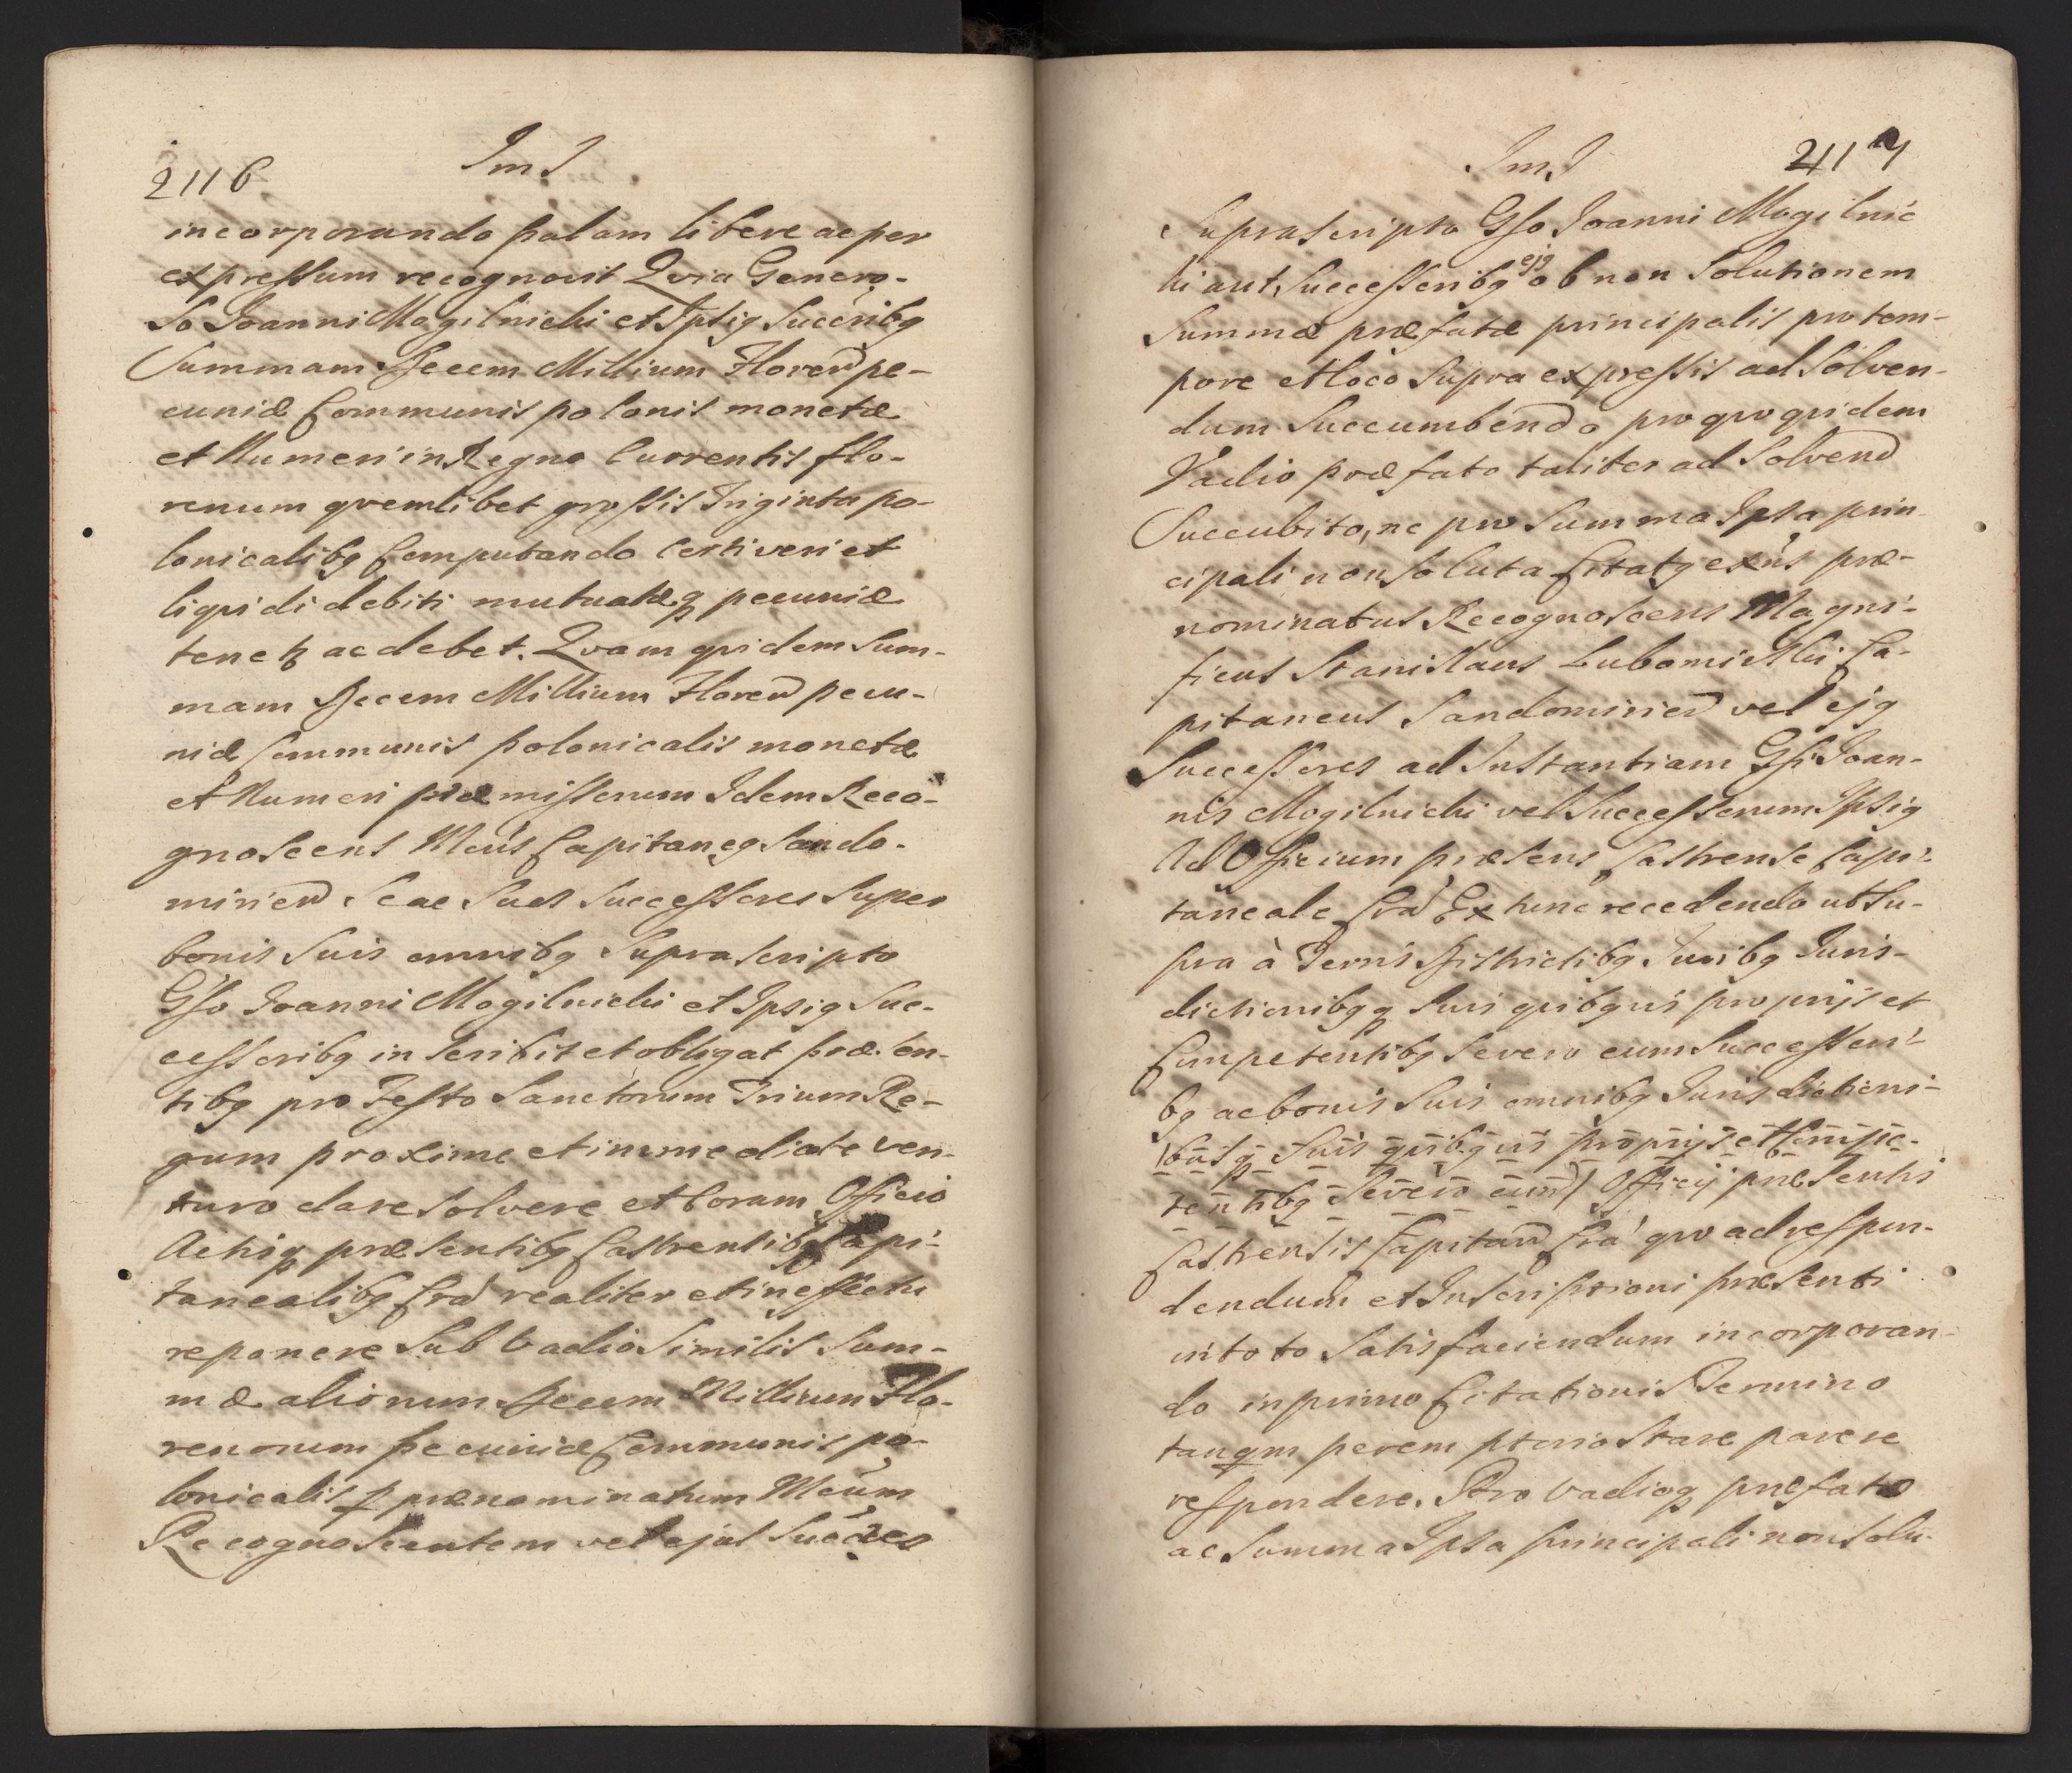 2116
ImJ
incorporando palam libere ac per
expressum recognovit Qvia Genero-
so Joanni Mogilnicki et Ipsiq Succribq
Summam Decem Millium Floren pe-
cuniæ Communis polonis monetæ
et Numeri in Regno Currentis flo-
renum qvemlibet grossis Triginta po-
lonicalibq Computando certi veri et
liqvidi debiti mutuatæq pecuniæ
tenet ac debet. Qvam qvidem Sum-
mam Decem Millium Floren pecu-
niæ Communis polonicalis monetæ
et Numeri præmissorum Idem Reco-
gnoscens Mcus Capitaneq Sando-
mirien Se ac Suos Successores Super
bonis Suis omnibq Suprascripto
Gso Joanni Mogilnicki et Ipsiq Suc-
cessoribq inscribit et obligat præsen-
tibq pro Festo Sanctorum Trium Re-
gum proxime et immediate ven-
turo dare solvere et Coram Officio
Actisq præsentibq Castrensibq Capi-
tanealibq Cra realiter et in effectu
reponere Sub Vadio Similis Sum-
mæ aliorum Decem Millium Flo-
renorum pecuniæ Communis po-
lonicalis p prænominatum Mcum
Recognoscentem vel ejus Succres
ImJ
2117
Suprascripto Gso Joanni Mogilnic
ki aut Successoribq ejq ob non Solutionem
Summæ præfatæ principalis pro tem-
pore et loco Supra expressis ad Solven-
dum Succumbendo pro qvo qvidem
Vadio præfato taliter ad Solvend
Succubito, ac pro Summa Ipsa prin-
cipali non soluta Citatq exns præ-
nominatus Recognoscens Magni-
ficus Stanislaus Lubomirski Ca-
pitaneus Sandomirien vel ejq
Successores ad Instantiam Gsi Joan-
nis Mogilnicki vel Successorum Ipsiq
Ad Officium præsens Castrense Capi-
taneale Cra Ex tunc recedendo ut Su-
pra à Terris Districtibq Juribq Juris-
dictionibqq Suis qvibqvis proprijs et
Competentibq Se vero cum Successori-
bq ac bonis Suis omnibq Jurisdictioni-
busq Suis qvibqvis proprijs et Compe-
tentibq Se vero cum) Officij præsentis
Castrensis Capitan Cra qvo ad respon-
dendum et Inscriptioni præsenti
in toto Satisfaciendum incorporan-
do in primo Citationis Termino
tanqm peremptorio Stare parere
respondere. Pro Vadioq præfato
ac Summa Ipsa principali non Solu-